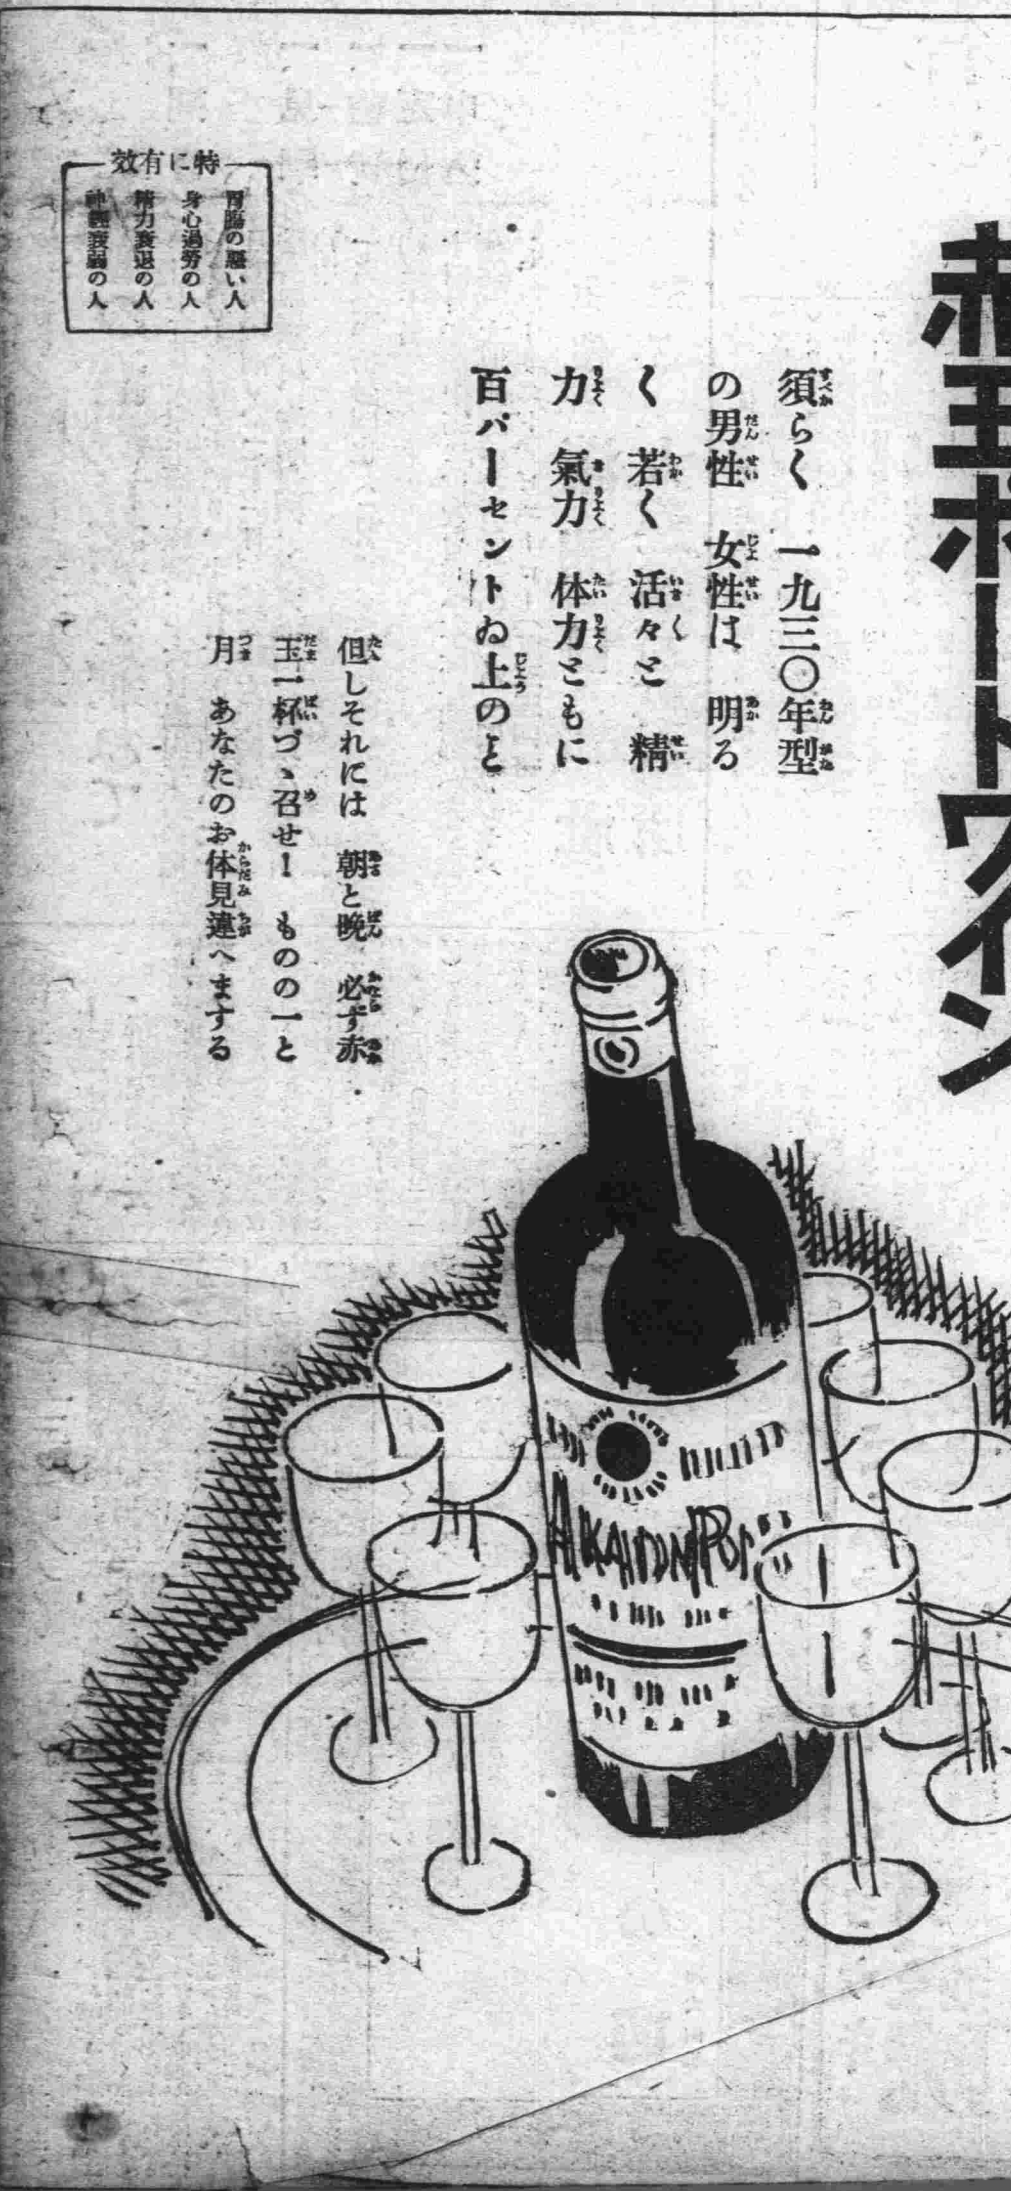 赤玉ポートワイン
須らく　一九三〇年型
の男性　女性は　明る
く　若く　活々と　精
力　氣力　体力ともに
百パーセントゐ上のと
但しそれには　朝と晩　必ず赤
玉一杯づゝ召せ！　ものの一と
月　あなたのお体見違へまする
特に有效
胃腸の惡い人
身心過勞の人
精力衰退の人
神經衰弱の人